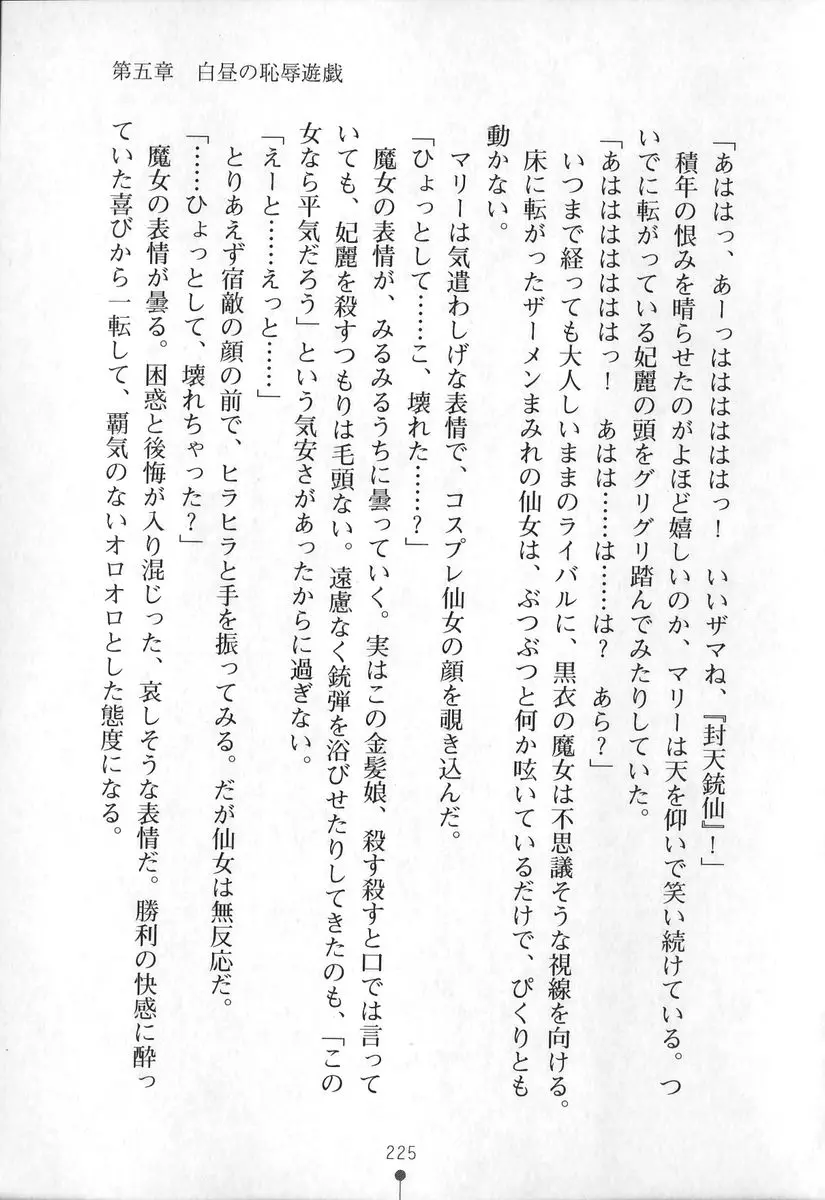 第五章　白昼の恥辱遊戯
「あははっ、あーっははははははっ！　いいザマね、『封天銃仙』！」
　積年の恨みを晴らせたのがよほど嬉しいのか、マリーは天を仰いで笑い続けている。つ
いでに転がっている妃麗の頭をグリグリ踏んでみたりしていた。
「あはははははははっ！　あはは……は……は？　あら？」
　いつまで経っても大人しいままのライバルに、黒衣の魔女は不思議そうな視線を向ける。
　床に転がったザーメンまみれの仙女は、ぶつぶつと何か呟いているだけで、ぴくりとも
動かない。
　マリーは気遣わしげな表情で、コスプレ仙女の顔を覗き込んだ。
「ひょっとして……こ、壊れた……？」
　魔女の表情が、みるみるうちに曇っていく。実はこの金髪娘、殺す殺すと口では言って
いても、妃麗を殺すつもりは毛頭ない。遠慮なく銃弾を浴びせたりしてきたのも、「この
女なら平気だろう」という気安さがあったからに過ぎない。
「えーと……えっと……」
　とりあえず宿敵の顔の前で、ヒラヒラと手を振ってみる。だが仙女は無反応だ。
「……ひょっとして、壊れちゃった？」
　魔女の表情が曇る。困惑と後悔が入り混じった、哀しそうな表情だ。勝利の快感に酔っ
ていた喜びから一転して、覇気のないオロオロとした態度になる。
225